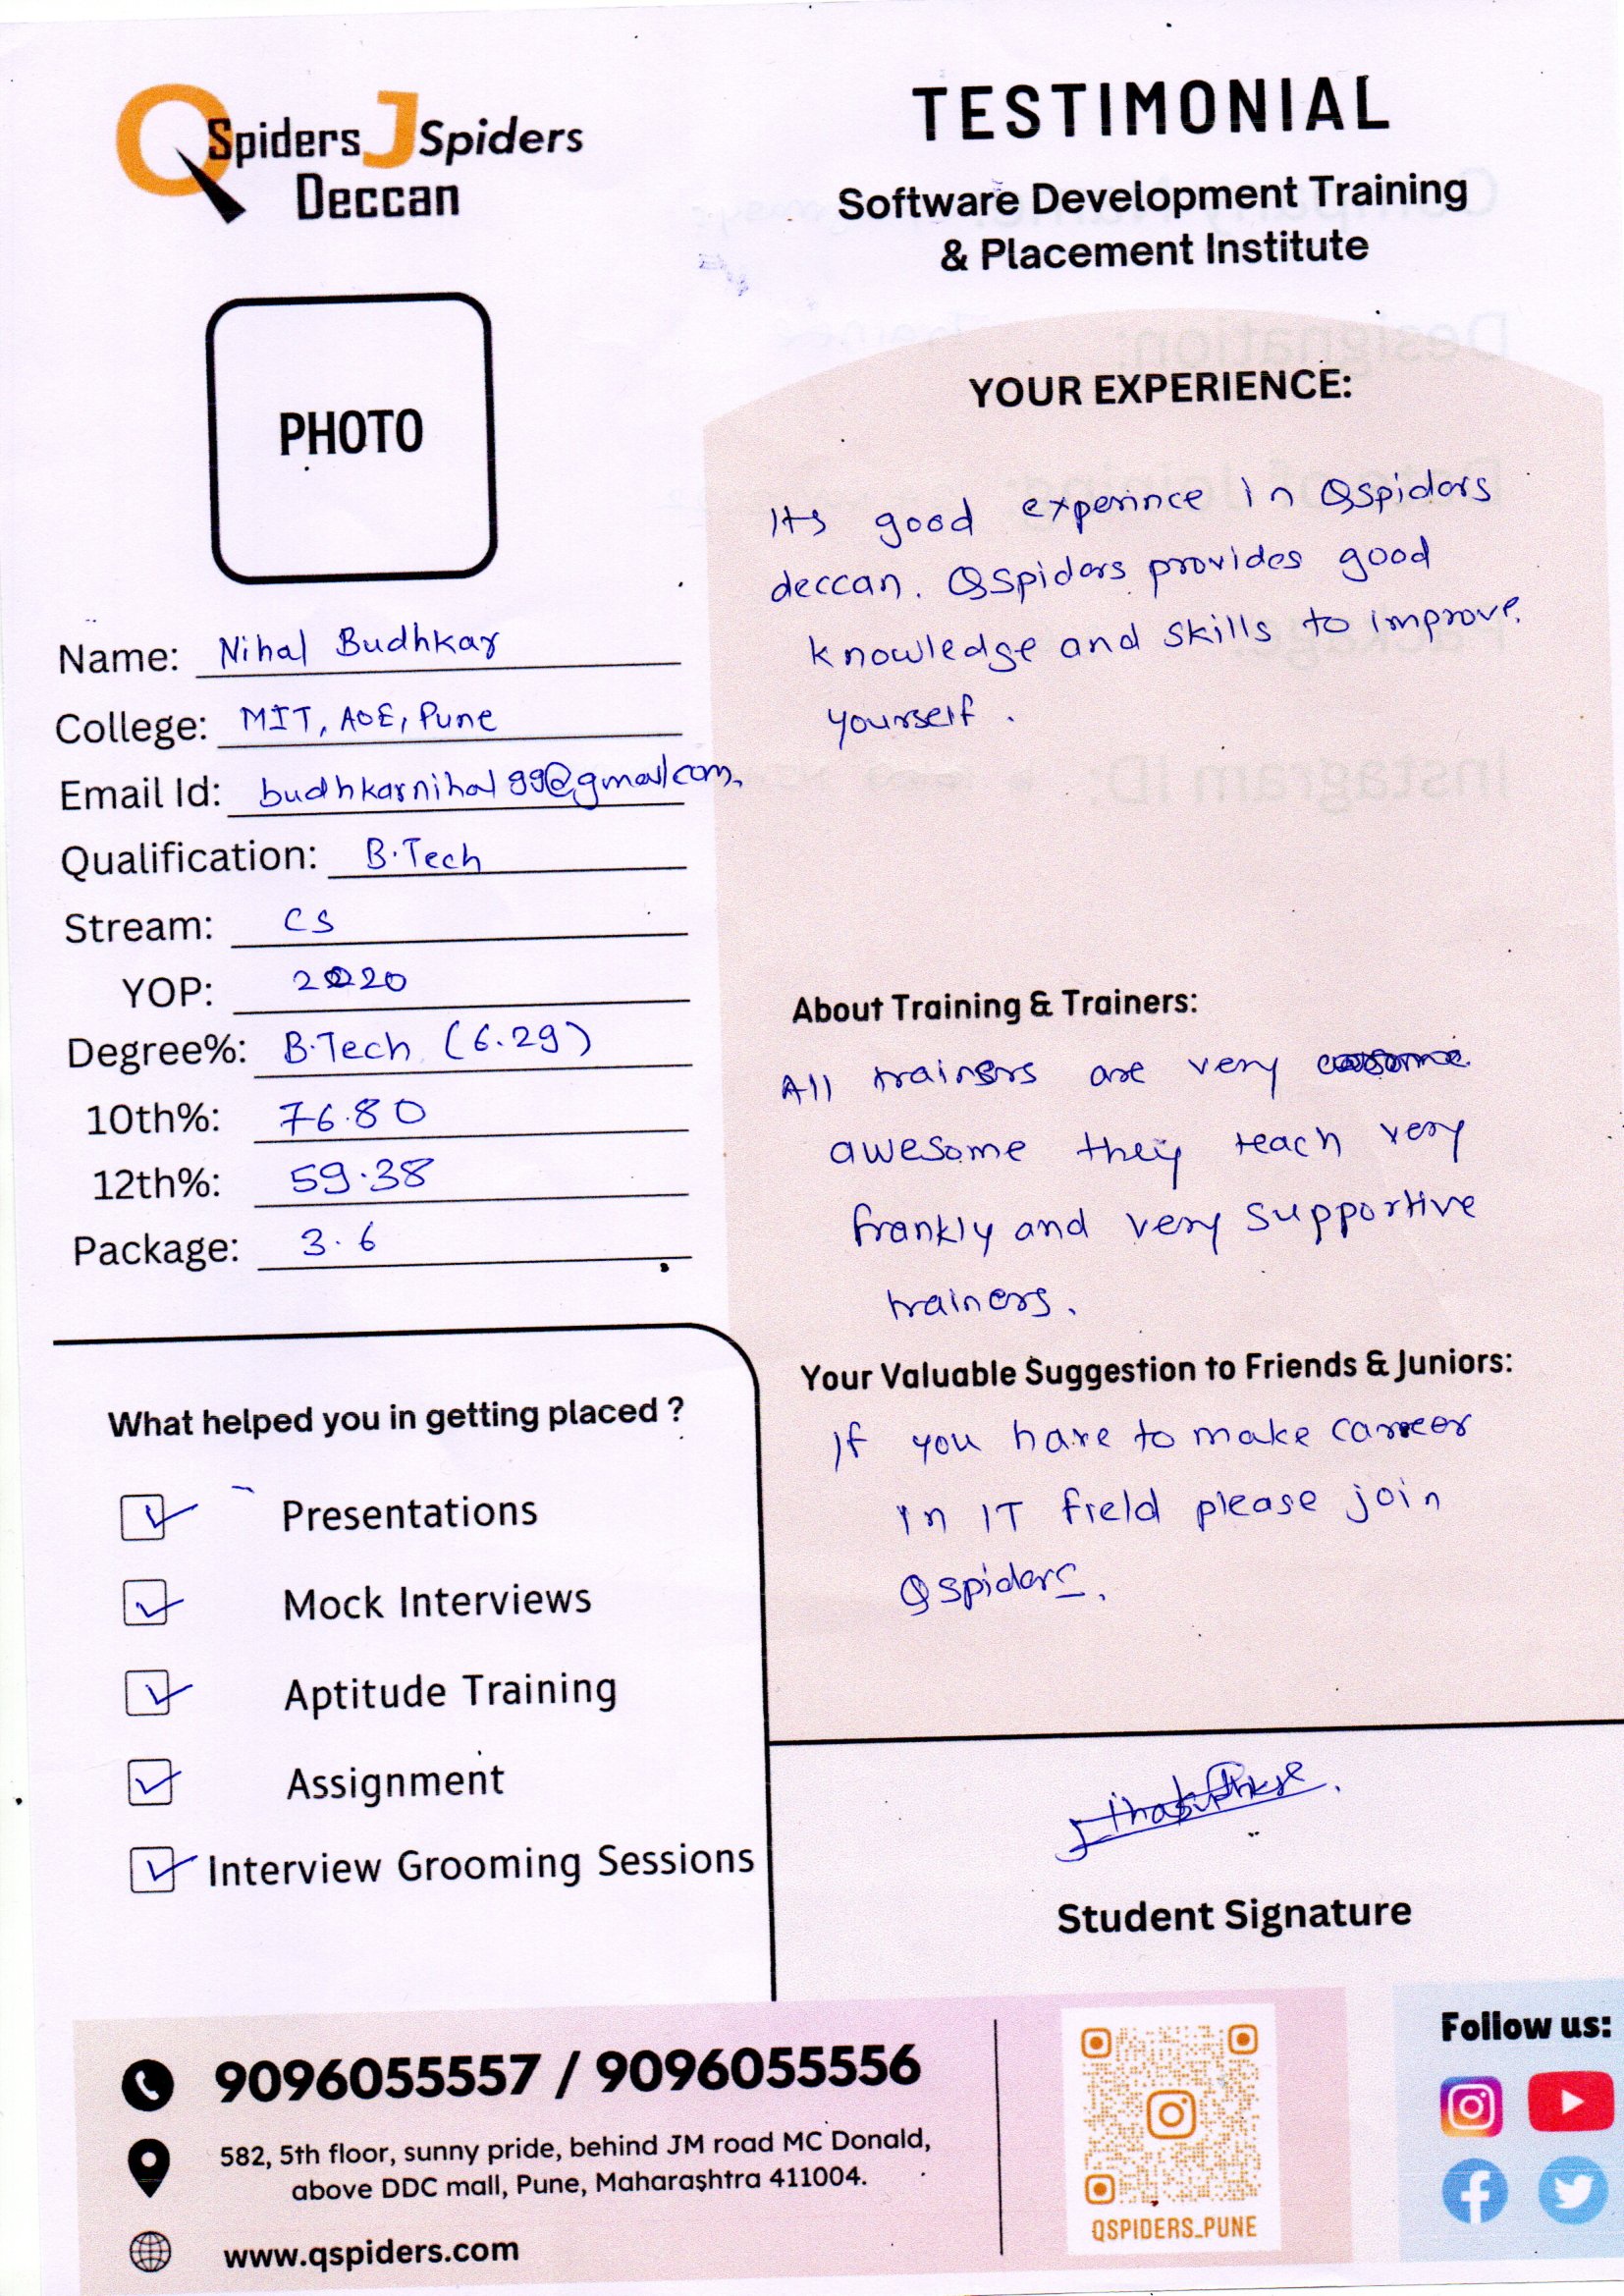 QSpiders JSpiders
Deccan
TESTIMONIAL
Software Development Training
& Placement Institute
PHOTO
Name: Nihal Budhkar
College: MIT, AOE, Pune
Email Id: budhkarnihal99@gmail.com.
Qualification: B.Tech
Stream: CS
YOP: 2020
Degree%: B.Tech (6.29)
10th%: 76.80
12th%: 59.38
Package: 3.6
What helped you in getting placed ?
Presentations
Mock Interviews
Aptitude Training
Assignment
Interview Grooming Sessions
YOUR EXPERIENCE:
Its good experince in Qspidars
deccan. Qspidars provides good
knowledge and skills to improve.
yourself.
About Training & Trainers:
All trainers are very
awesome they teach very
frankly and very supportive
trainers.
Your Valuable Suggestion to Friends & Juniors:
If you have to make carreer
in IT field please join
Qspidars.
Student Signature
9096055557 / 9096055556
582, 5th floor, sunny pride, behind JM road MC Donald,
above DDC mall, Pune, Maharashtra 411004.
www.qspiders.com
QSPIDERS_PUNE
Follow us: